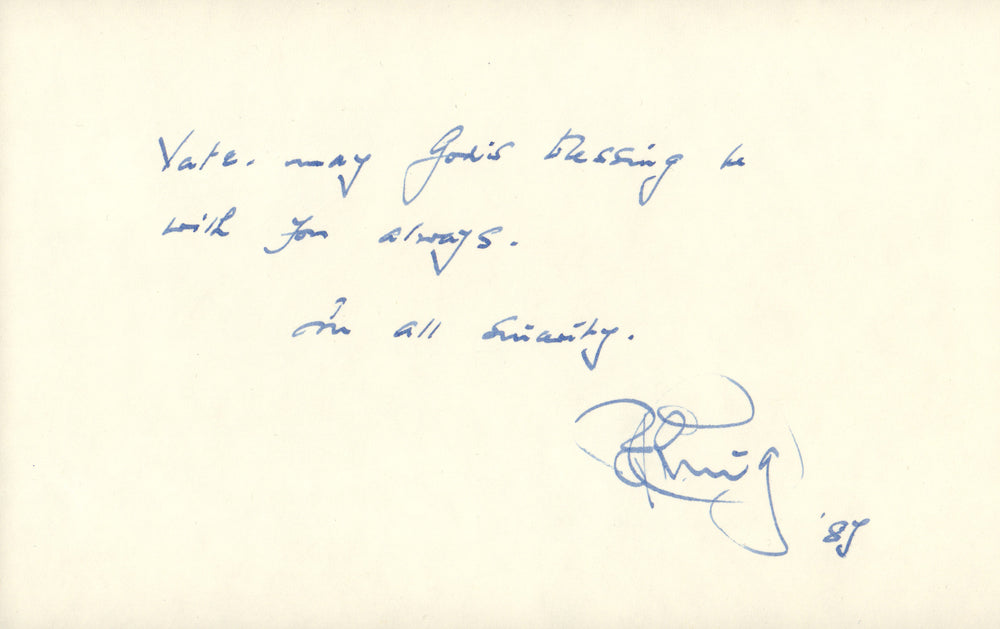 Yate. may God's blessing be
with you always.
In all sincerity.
'87